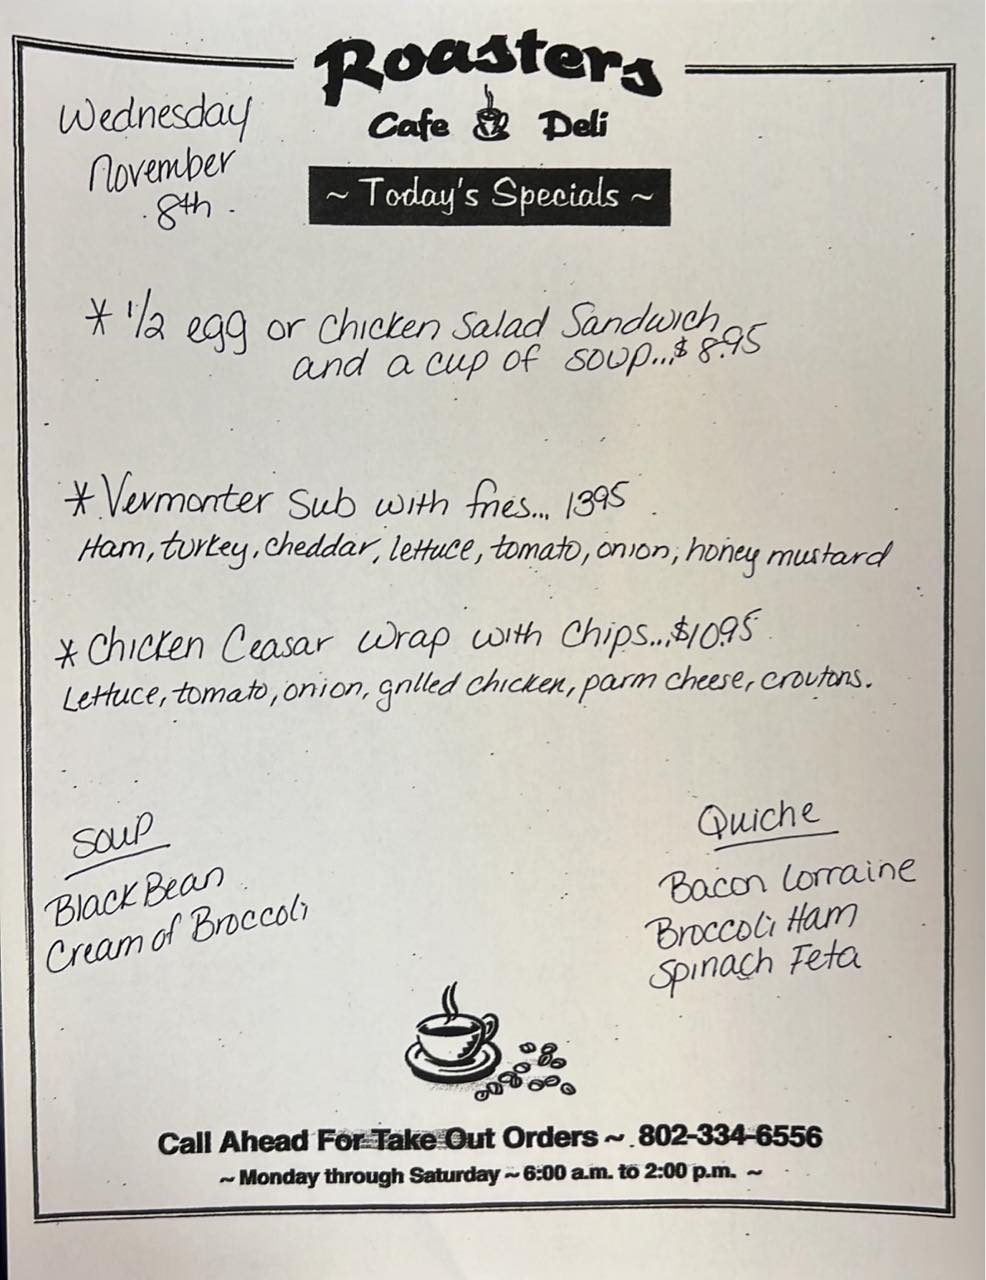 Roasters
Cafe Deli
Wednesday
November
8th
~ Today's Specials ~
* 1/2 egg or chicken Salad Sandwich
and a cup of soup...$8.95
* Vermonter Sub with fries... 1395
Ham, turkey, cheddar, lettuce, tomato, onion, honey mustard
* Chicken Ceasar Wrap with Chips...$1095
Lettuce, tomato, onion, grilled chicken, parm cheese, croutons.
Soup
Black Bean
Cream of Broccoli
Quiche
Bacon Lorraine
Broccoli Ham
Spinach Feta
Call Ahead For Take Out Orders ~ 802-334-6556
~ Monday through Saturday ~ 6:00 a.m. to 2:00 p.m. ~